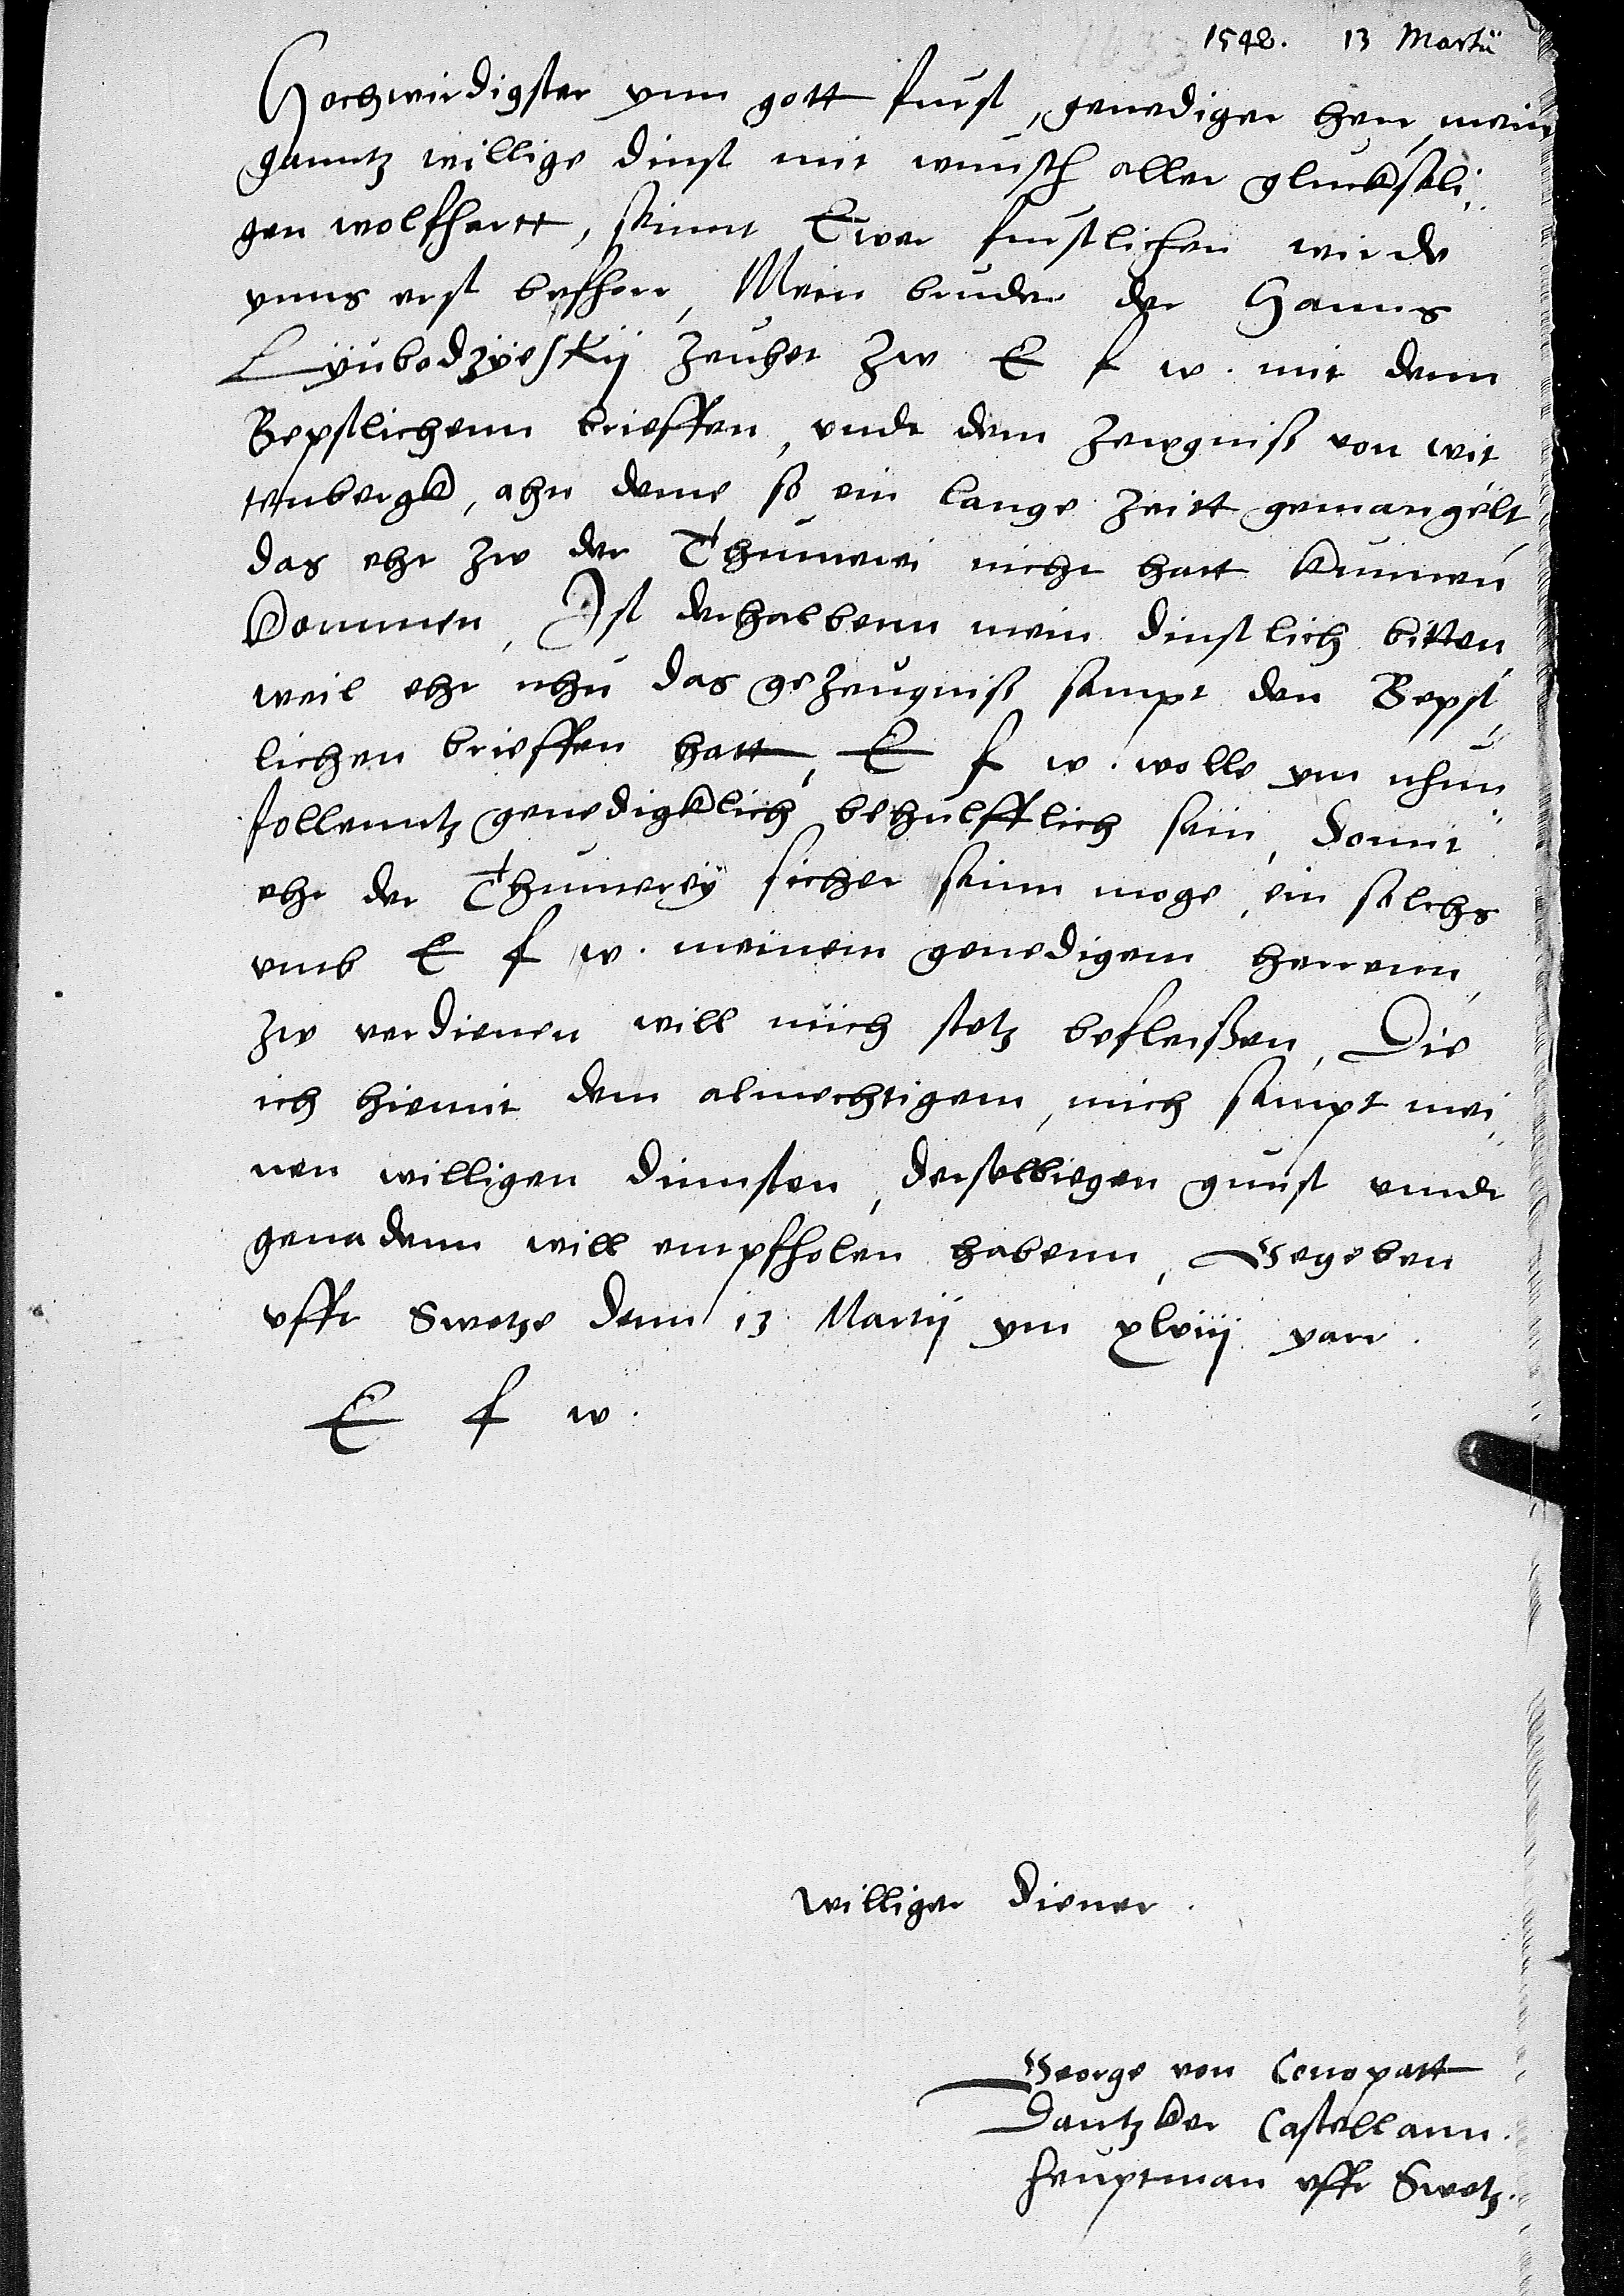 1548. 13 Martii
Hochwirdigster ynn gott furst, genediger herr, mein
ganntz willige dinst mit wunsch aller gluckseli
gen wolfhartt, seinnt Ewer furstlichen wirde
ynns erst befhorr, Mein bruder der Hanns
Lyubodzyeskij zeuhet zw E f w. mit denn
Bepstlichenn brieffen, undt dem zewgniss von wit
tenbergk, ahn deme so ein lange zeitt gemangelt,
das ehr zw der Thumerei nicht hatt kunnen
kommen, Ist derhalbenn mein dinstlich bitten,
weil ehr nhu das gezeugniss sampt den Bepst
lichen brieffen hatt, E f w. wolle ym nhun
follenntz genedigklich behulfflich sein, domit
ehr der Thumerey sicher seinn moge, ein solchs
umb E f w. meinem genedigem herrenn
zw verdienen will mich stetz befleissen, Die
ich hiemit dem almechtigem, mich sampt mei
nen willigen dinnsten, derselbiegen gunst unndt
genadenn will empfholen habenn, Gegeben
uffr Swetze denn 13 Martij ym xlviij yarr.
E f w.
williger diener.
George von Conopatt
Dantzker Castellann.
heuptman uffr Swetz.